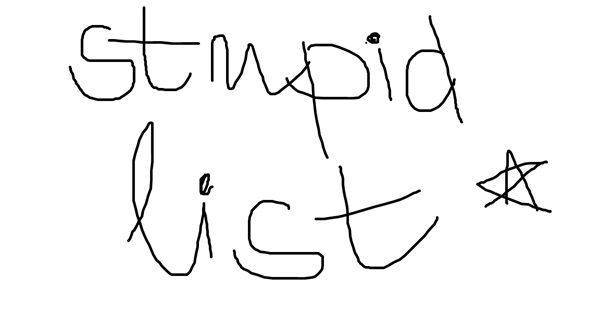 stupid
list